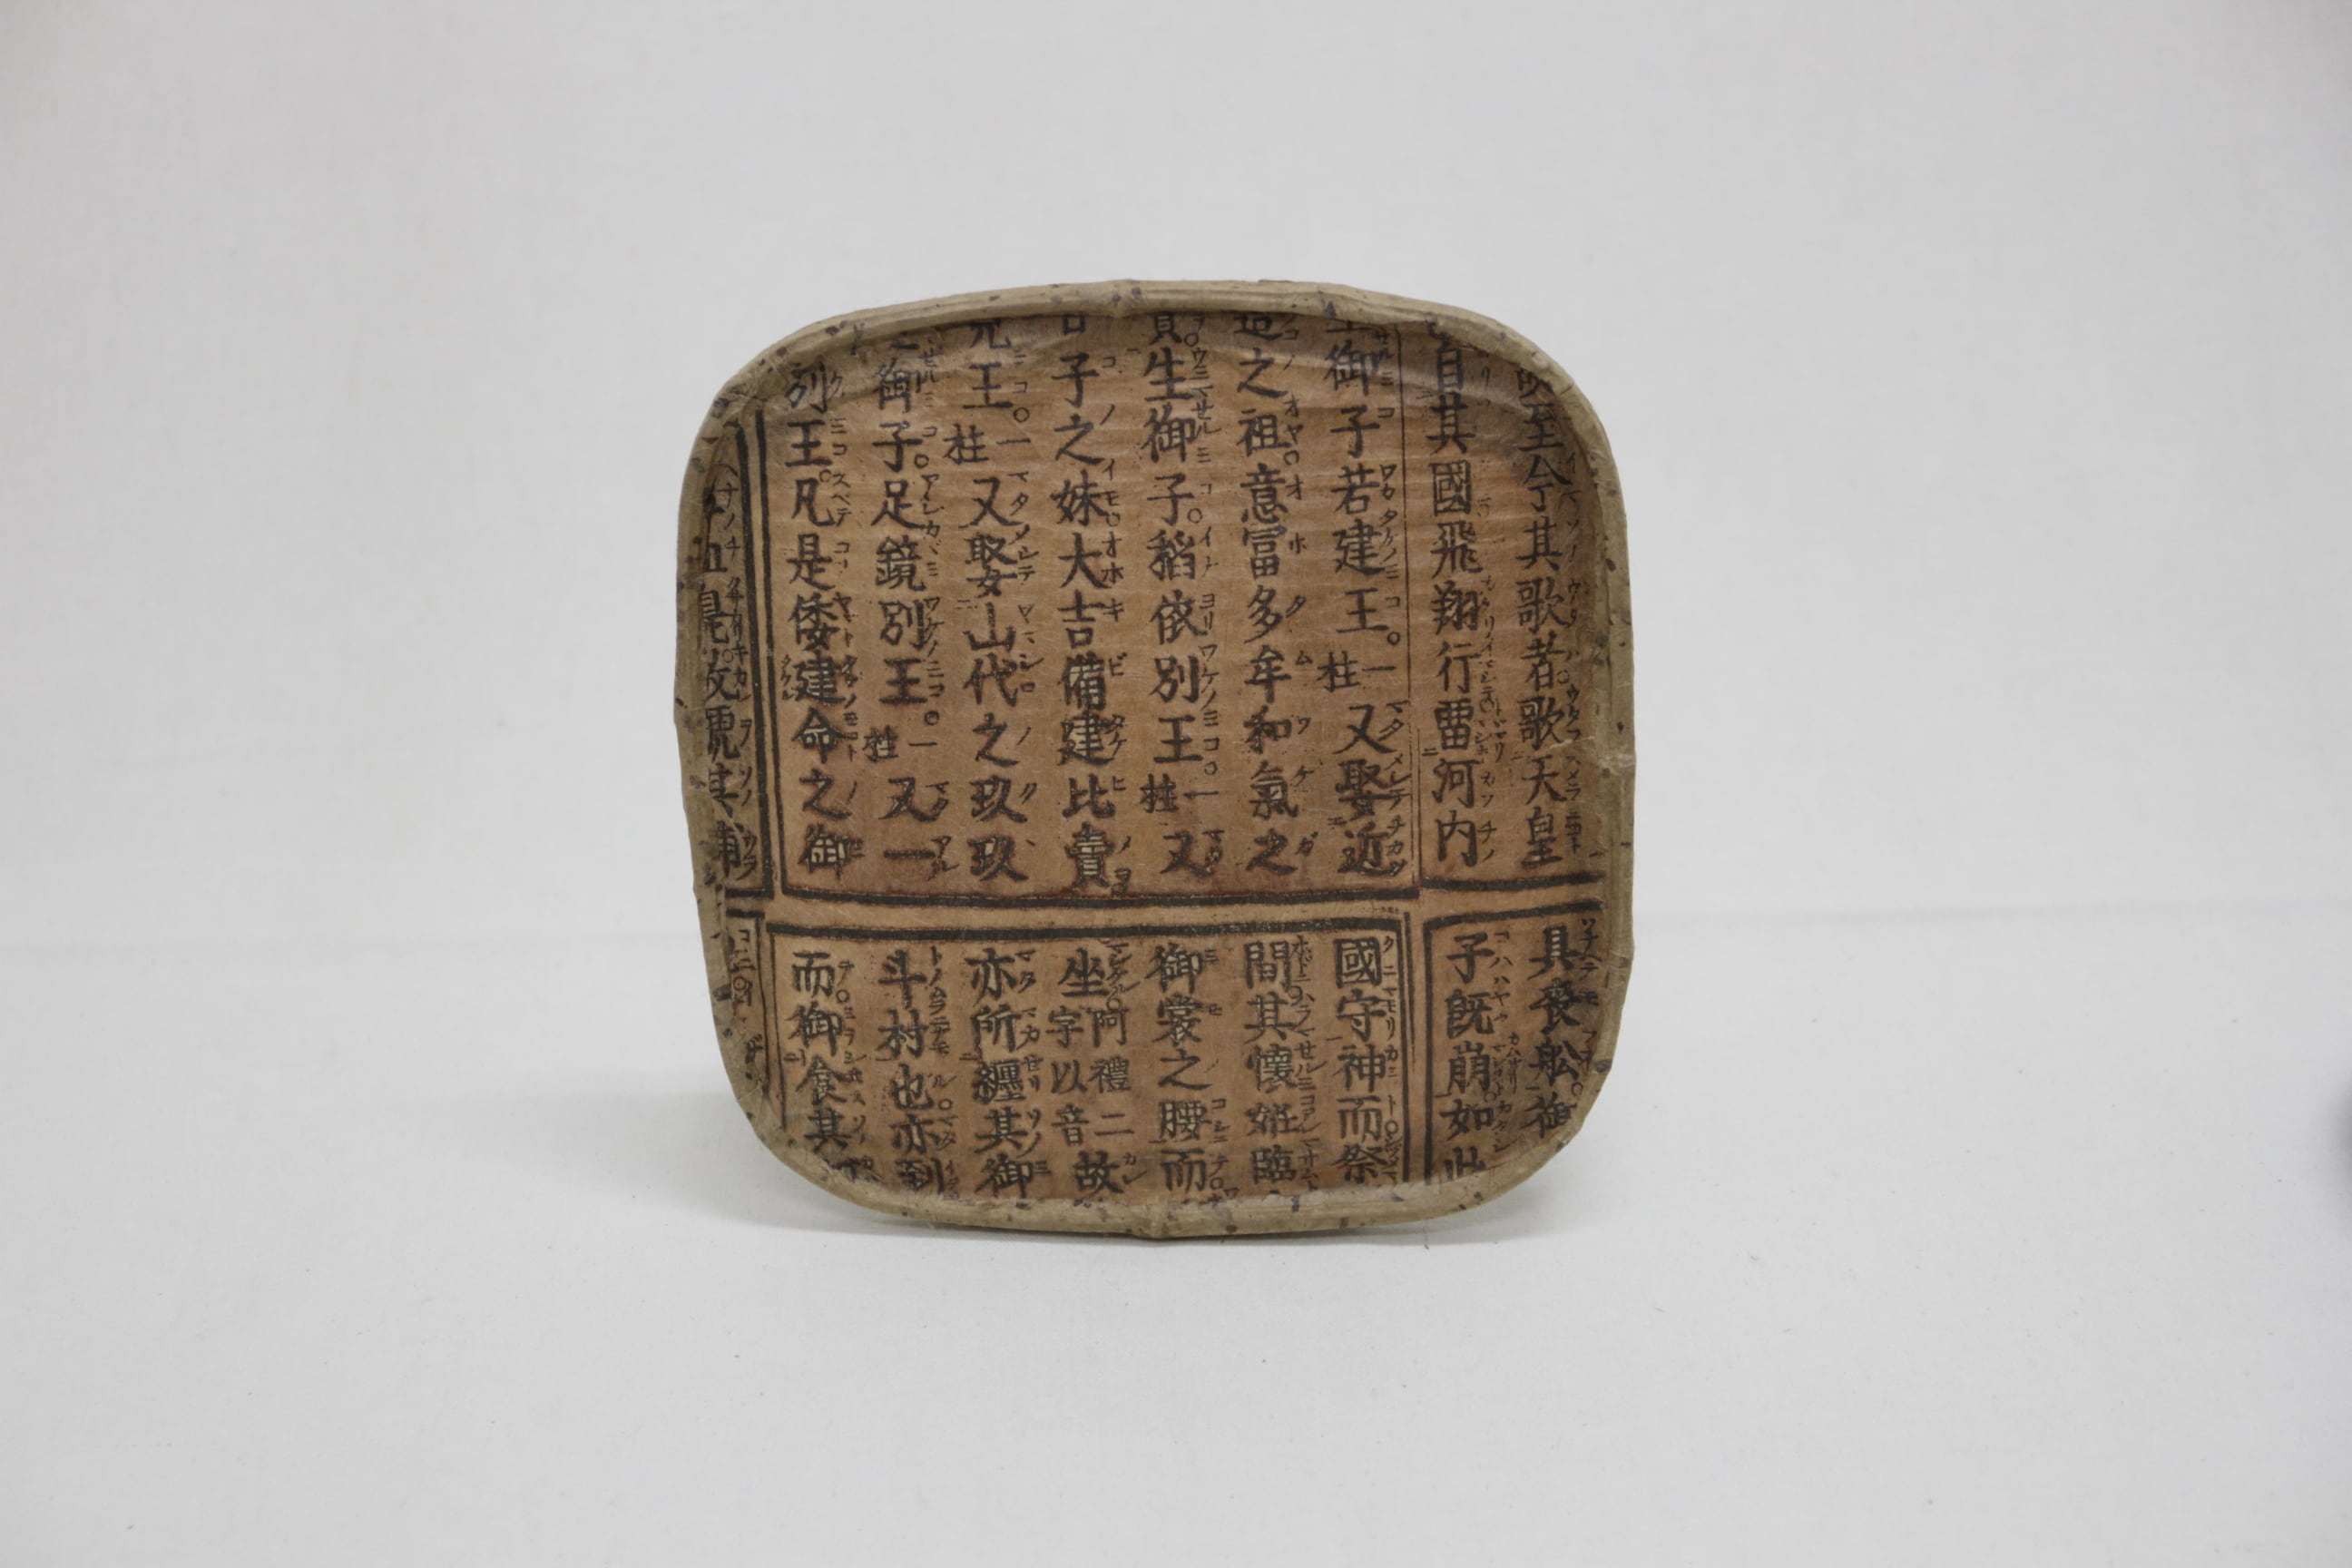 至今其歌者歌天皇
自其國飛翔行畱河内
御子若建王。一柱又娶近
之祖。意富多牟和氣之
生御子。稻依別王。一柱又
子之妹大吉備建比賣
王。一柱又娶山代之玖玖
御子。足鏡別王。一柱又一
別王。凡是倭建命之御
其浦
具喪船。御
子既崩如此
國守神而祭
間其懷妊臨
御裳之腰而
坐阿禮二字以音故
亦所纏其御
斗村也亦到
而御食其